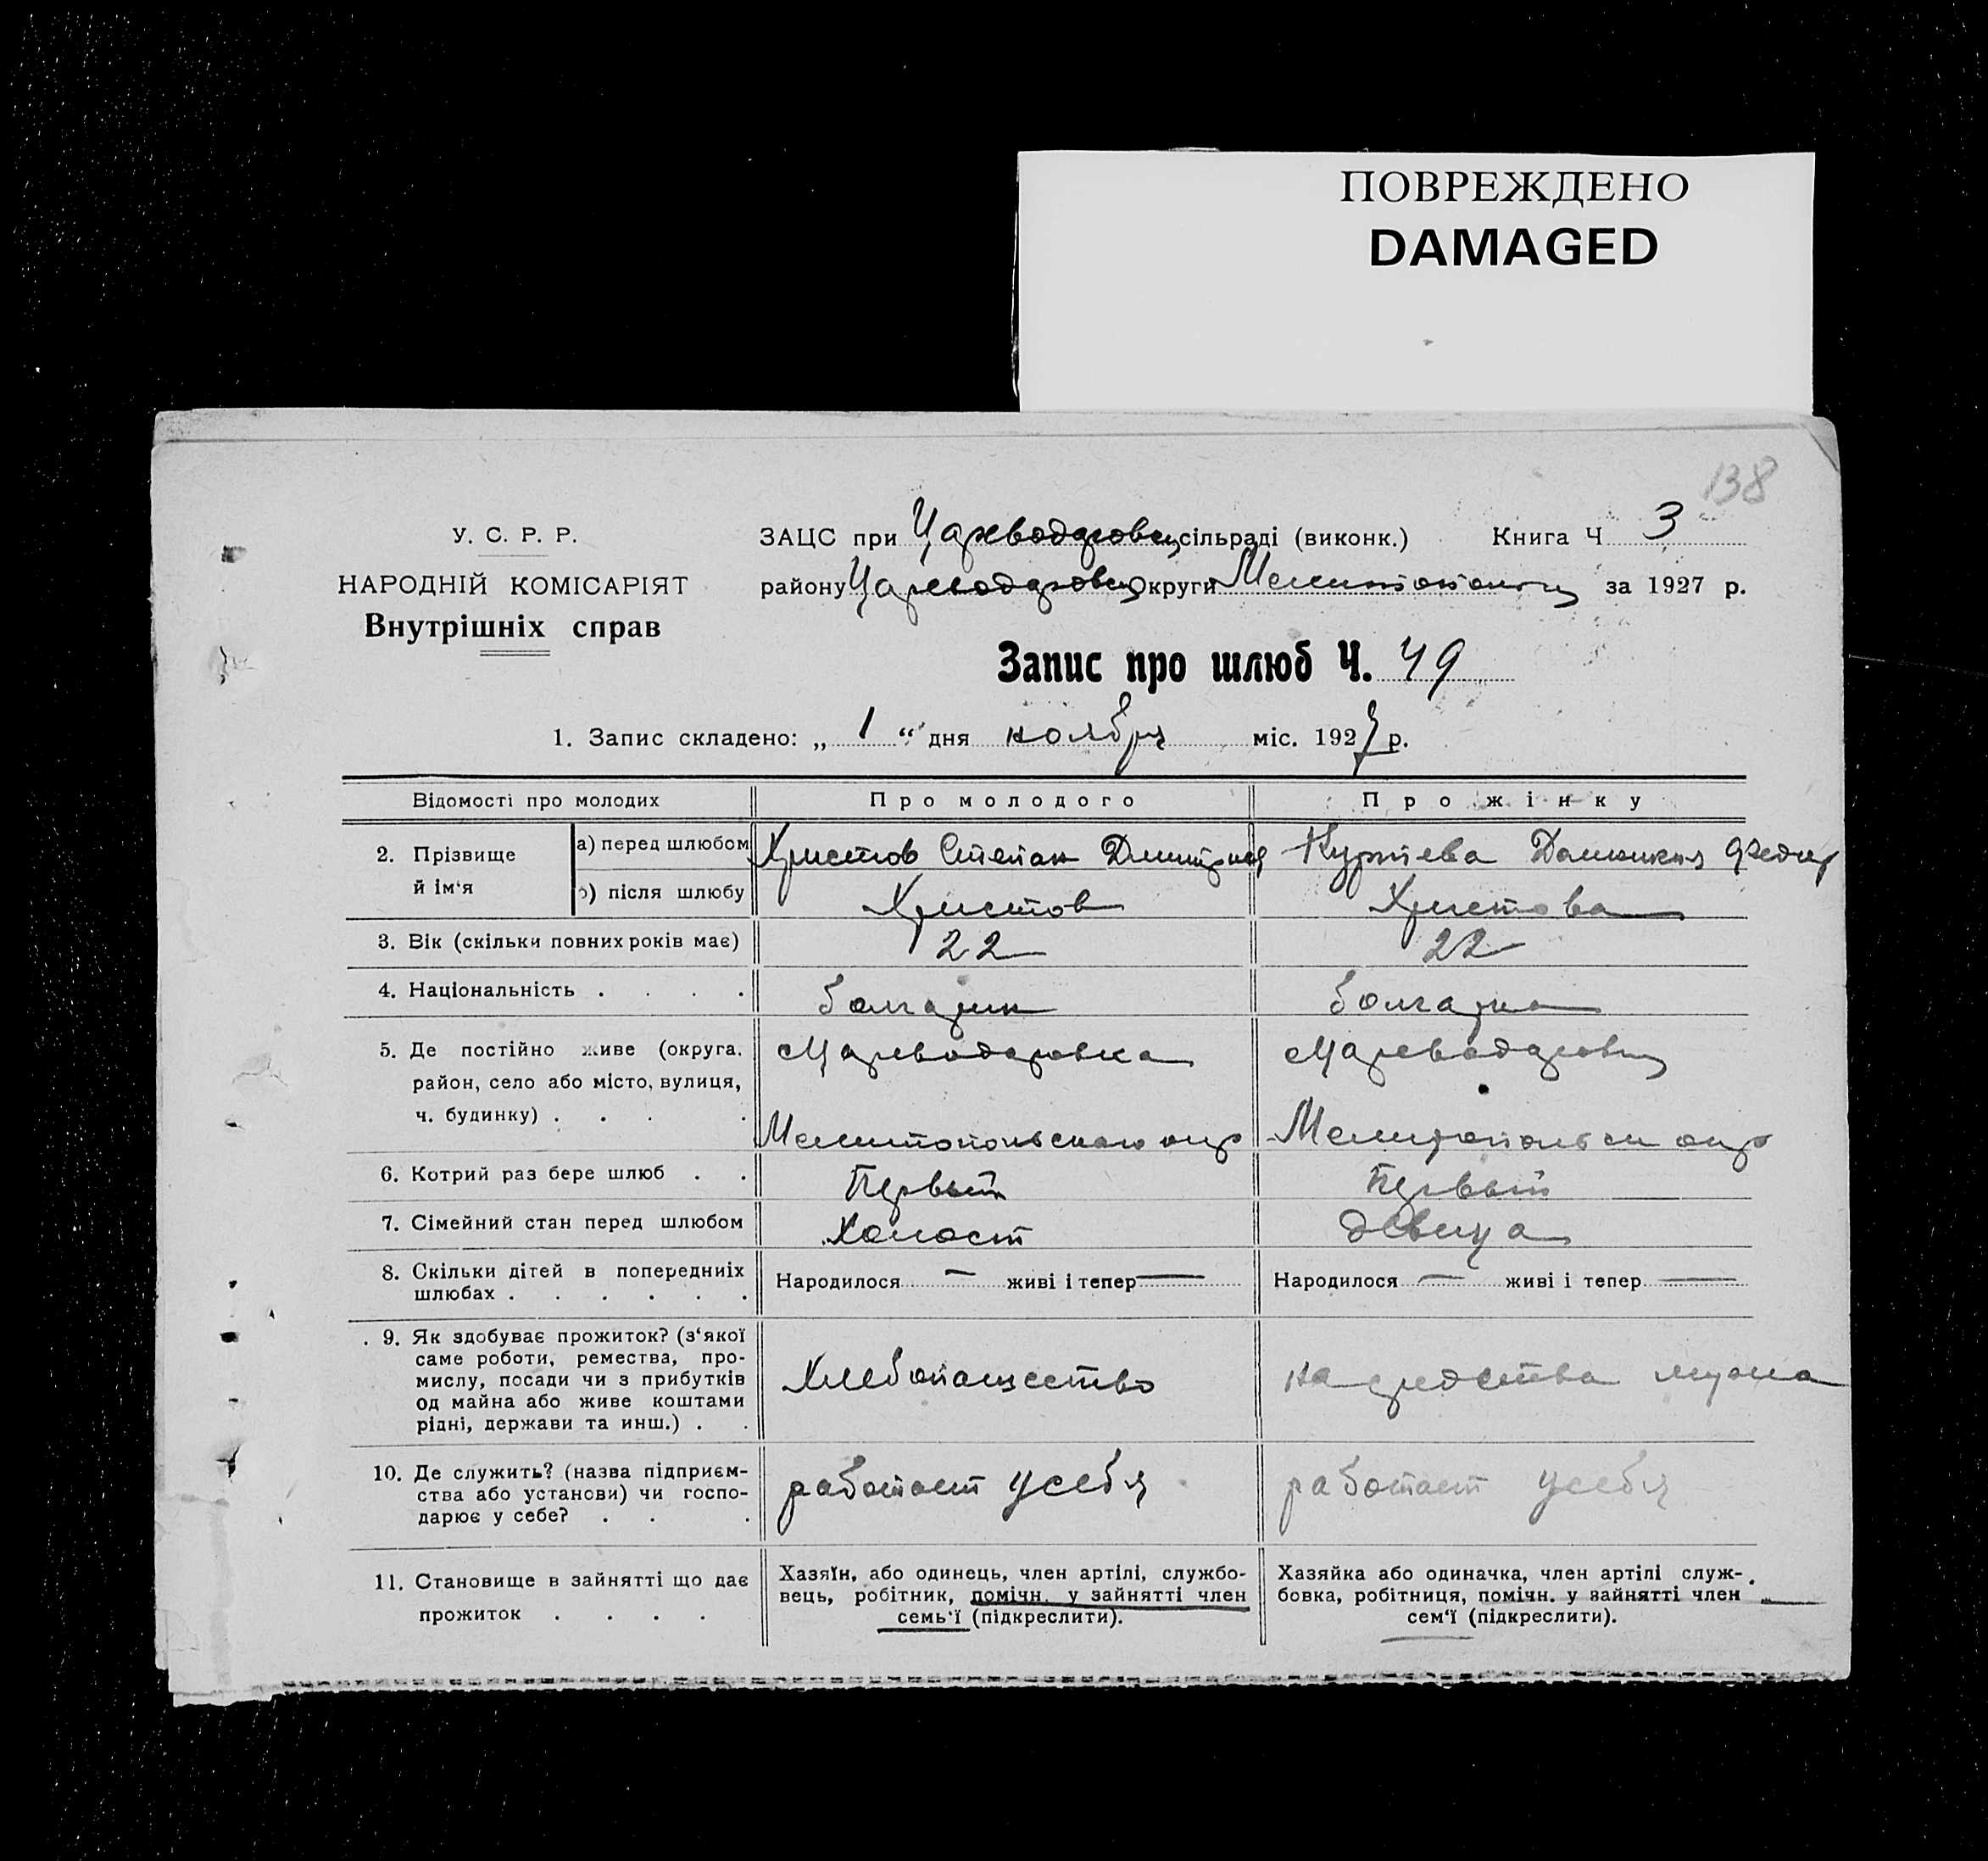 ПОВРЕЖДЕНО
DAMAGED
138
У. С. Р. Р.
НАРОДНІЙ КОМІСАРІЯТ
Внутрішніх справ
ЗАЦС при Цареводаровск сільраді (виконк.) Книга Ч 3
району Цареводаровск Округи за 1927 р.
Запис про шлюб Ч. 49
1. Запис складено: „ 1 “ дня ноября міс. 1927 р.
Відомості про молодих Про молодого Про жінку
2. Прізвище й ім‘я а) перед шлюбом Христов Степан Дмитриев Куртева Федор
б) після шлюбу Христов Христова
3. Вік (скільки повних років має) 22 22
4. Національність . . . . болгарин болгарка
5. Де постійно живе (округа, Цареводаровка
район, село або місто, вулиця,
ч. будинку) . . . . Мелитопольского окр Мелитопольск окр
6. Котрий раз бере шлюб . . Первый Первый
7. Сімейний стан перед шлюбом Холост девица
8. Скільки дітей в попередниіх шлюбах . . . . . . Народилося — живі і тепер — Народилося — живі і тепер —
9. Як здобуває прожиток? (з‘якої
саме роботи, ремества, про-
мислу, посади чи з прибутків
од майна або живе коштами
рідні, держави та инш.) . .
Хлебопашество на средства мужа
10. Де служить? (назва підприєм-
ства або установи) чи госпо-
дарює у себе? . . .
работает у себя работает у себя
11. Становище в зайнятті що дає
прожиток . . . .
Хазяїн, або одинець, член артілі, службо-
вець, робітник, помічн. у зайнятті член
семь‘ї (підкреслити).
Хазяйка або одиначка, член артілі служ-
бовка, робітниця, помічн. у зайнятті член
сем‘ї (підкреслити).